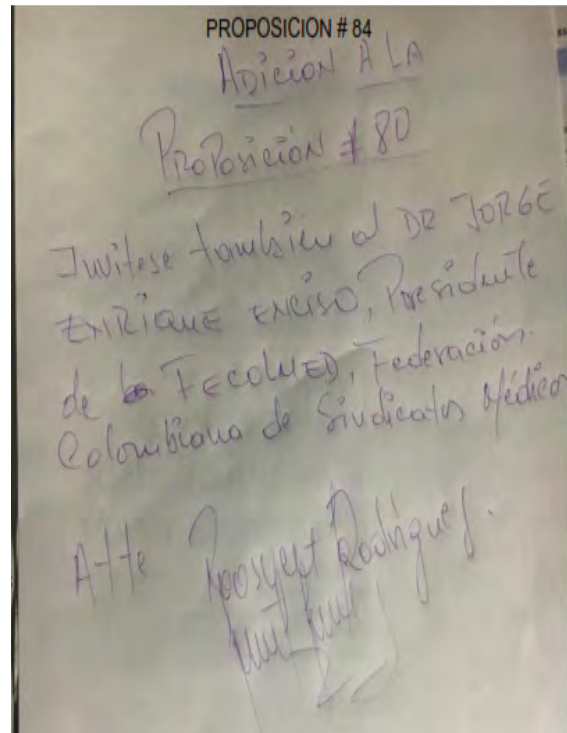 PROPOSICION # 84
ADICIÓN A LA
PROPOSICIÓN # 80
Invítese también al DR JORGE
ENRIQUE ENCISO, Presidente
de FECOLMED, Federación
Colombiana de Sindicatos Médicos
Atte Roosvelt Rodríguez.